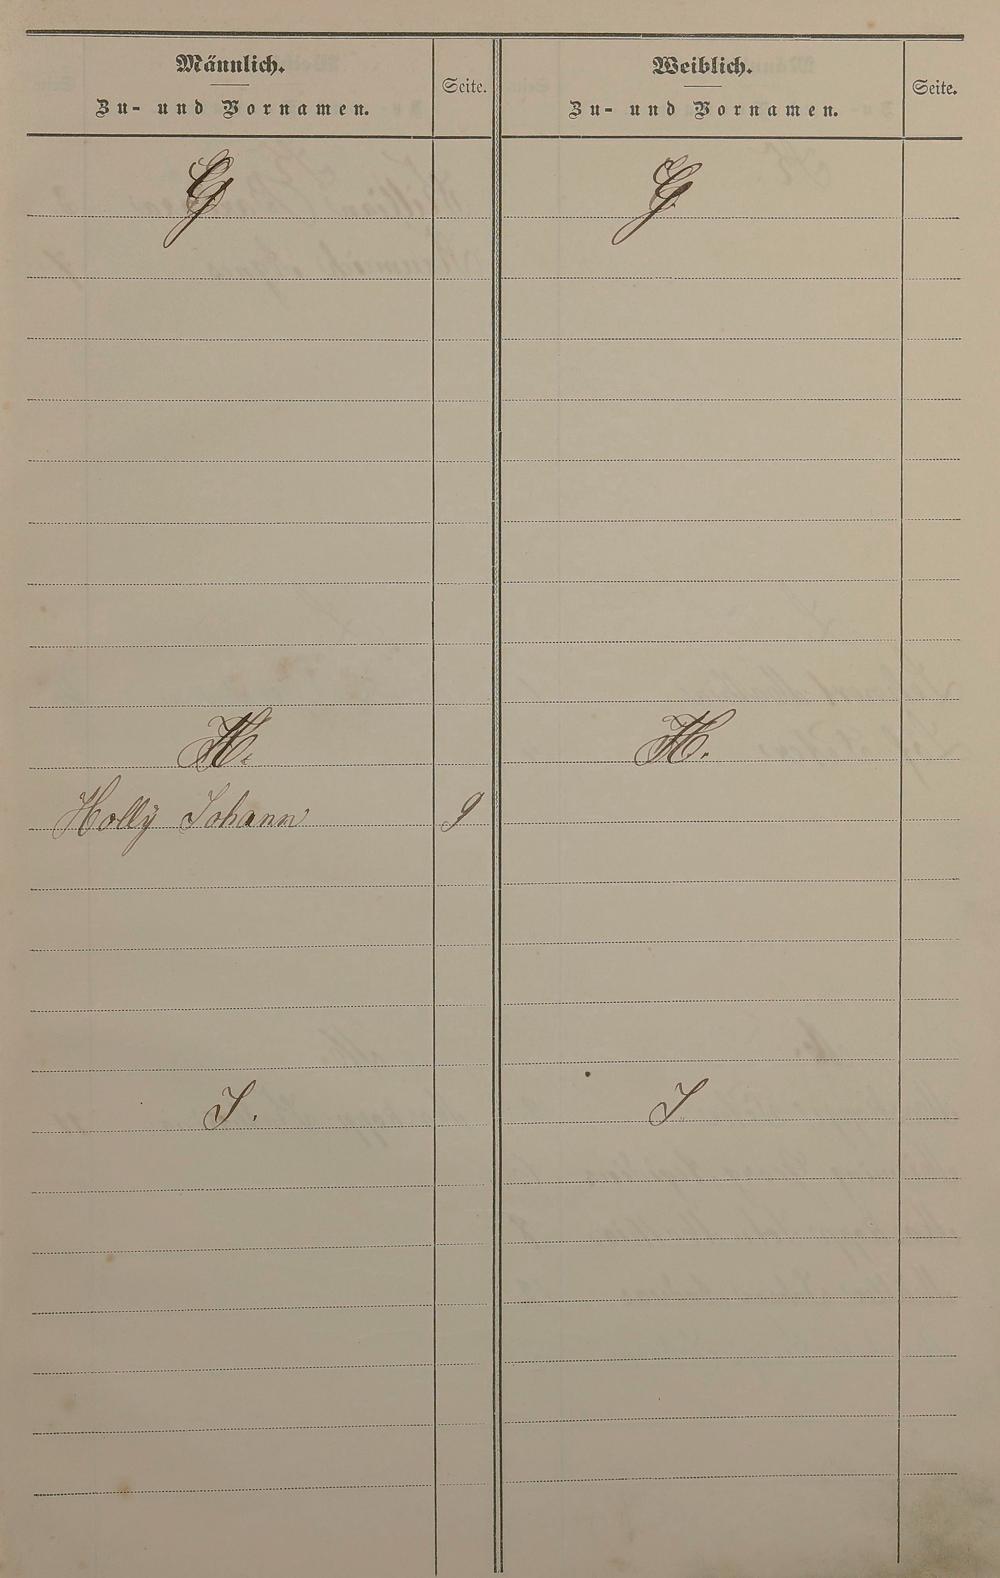 Männlich.
Zu- und Vornamen.
Seite.
Weiblich.
Zu- und Vornamen.
Seite.
G
G.
H.
H.
Hollÿ Johann 9
I.
I